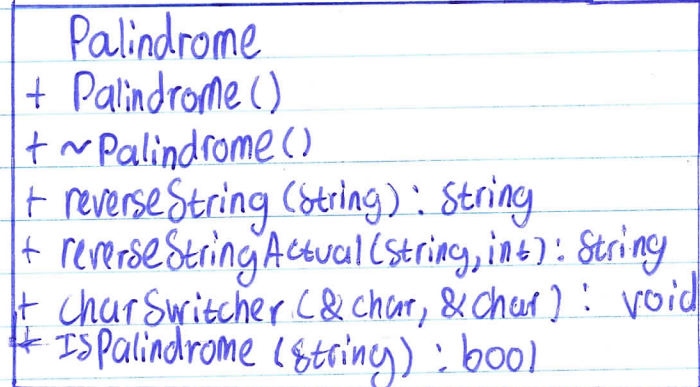 Palindrome
+ Palindrome()
+ ~Palindrome()
+ reverseString (String) : String
+ reverseStringActual(String, int): String
+ charSwitcher (&char, &char) : void
+ IsPalindrome (string) : bool